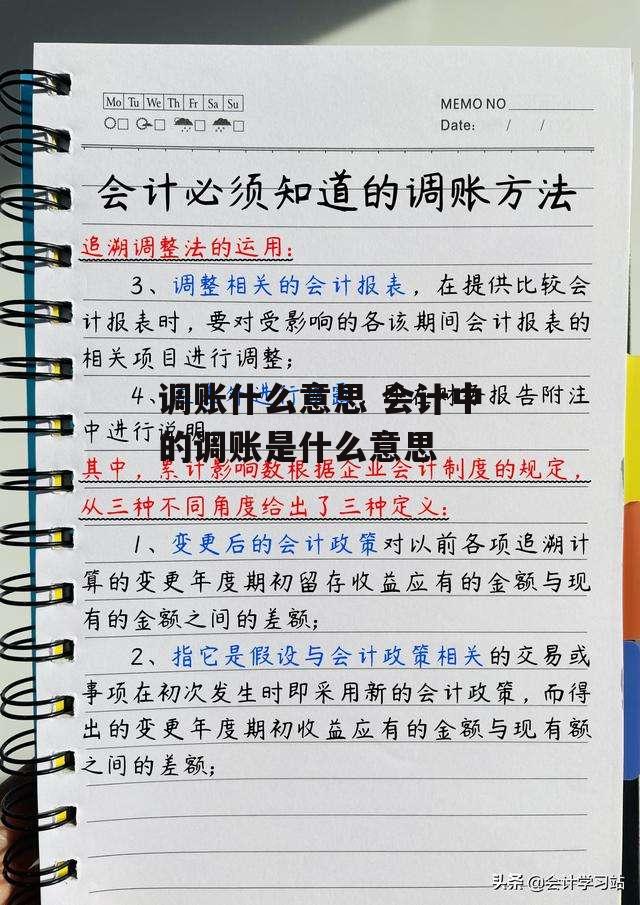 Mo Tu We Th Fr Sa Su
MEMO NO
Date: / /
会计必须知道的调账方法
追溯调整法的运用：
3、调整相关的会计报表，在提供比较会
计报表时，要对受影响的各该期间会计报表的
相关项目进行调整；
4、
报告附注
调账什么意思 会计中
中进行说明
的调账是什么意思
其中，累计影响数根据企业会计制度的规定，
从三种不同角度给出了三种定义：
1、变更后的会计政策对以前各项追溯计
算的变更年度期初留存收益应有的金额与现
有的金额之间的差额；
2、指它是假设与会计政策相关的交易或
事项在初次发生时即采用新的会计政策，而得
出的变更年度期初收益应有的金额与现有额
之间的差额；
头条 @会计学习站